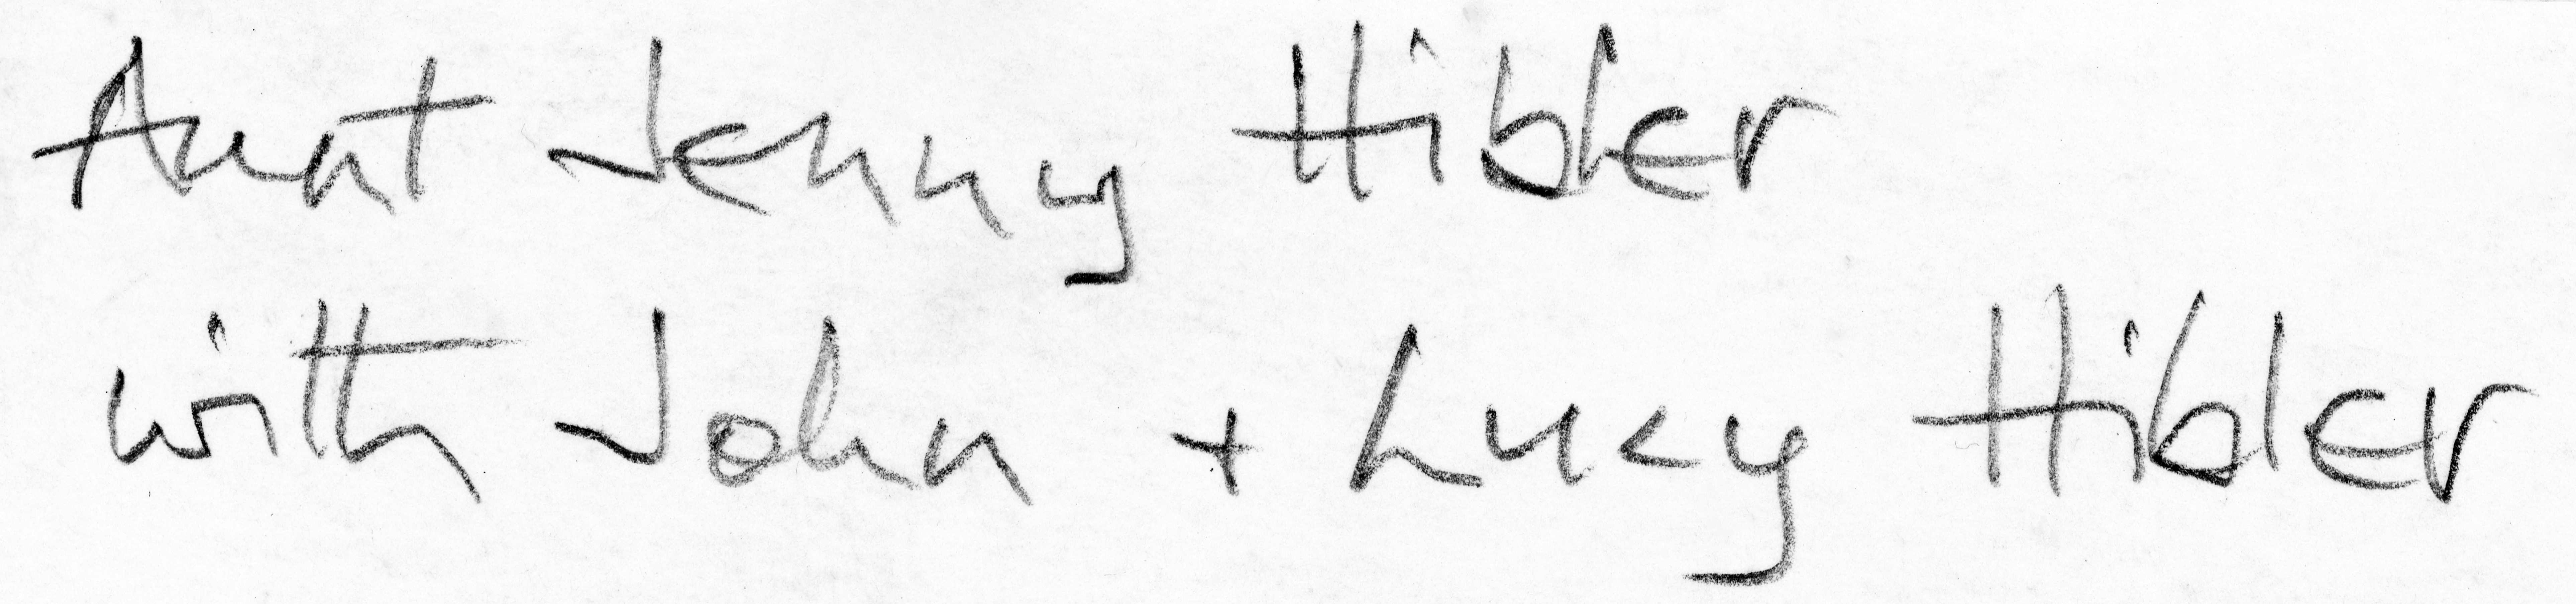 Aunt Jenny Hibler
with John + Lucy Hibler